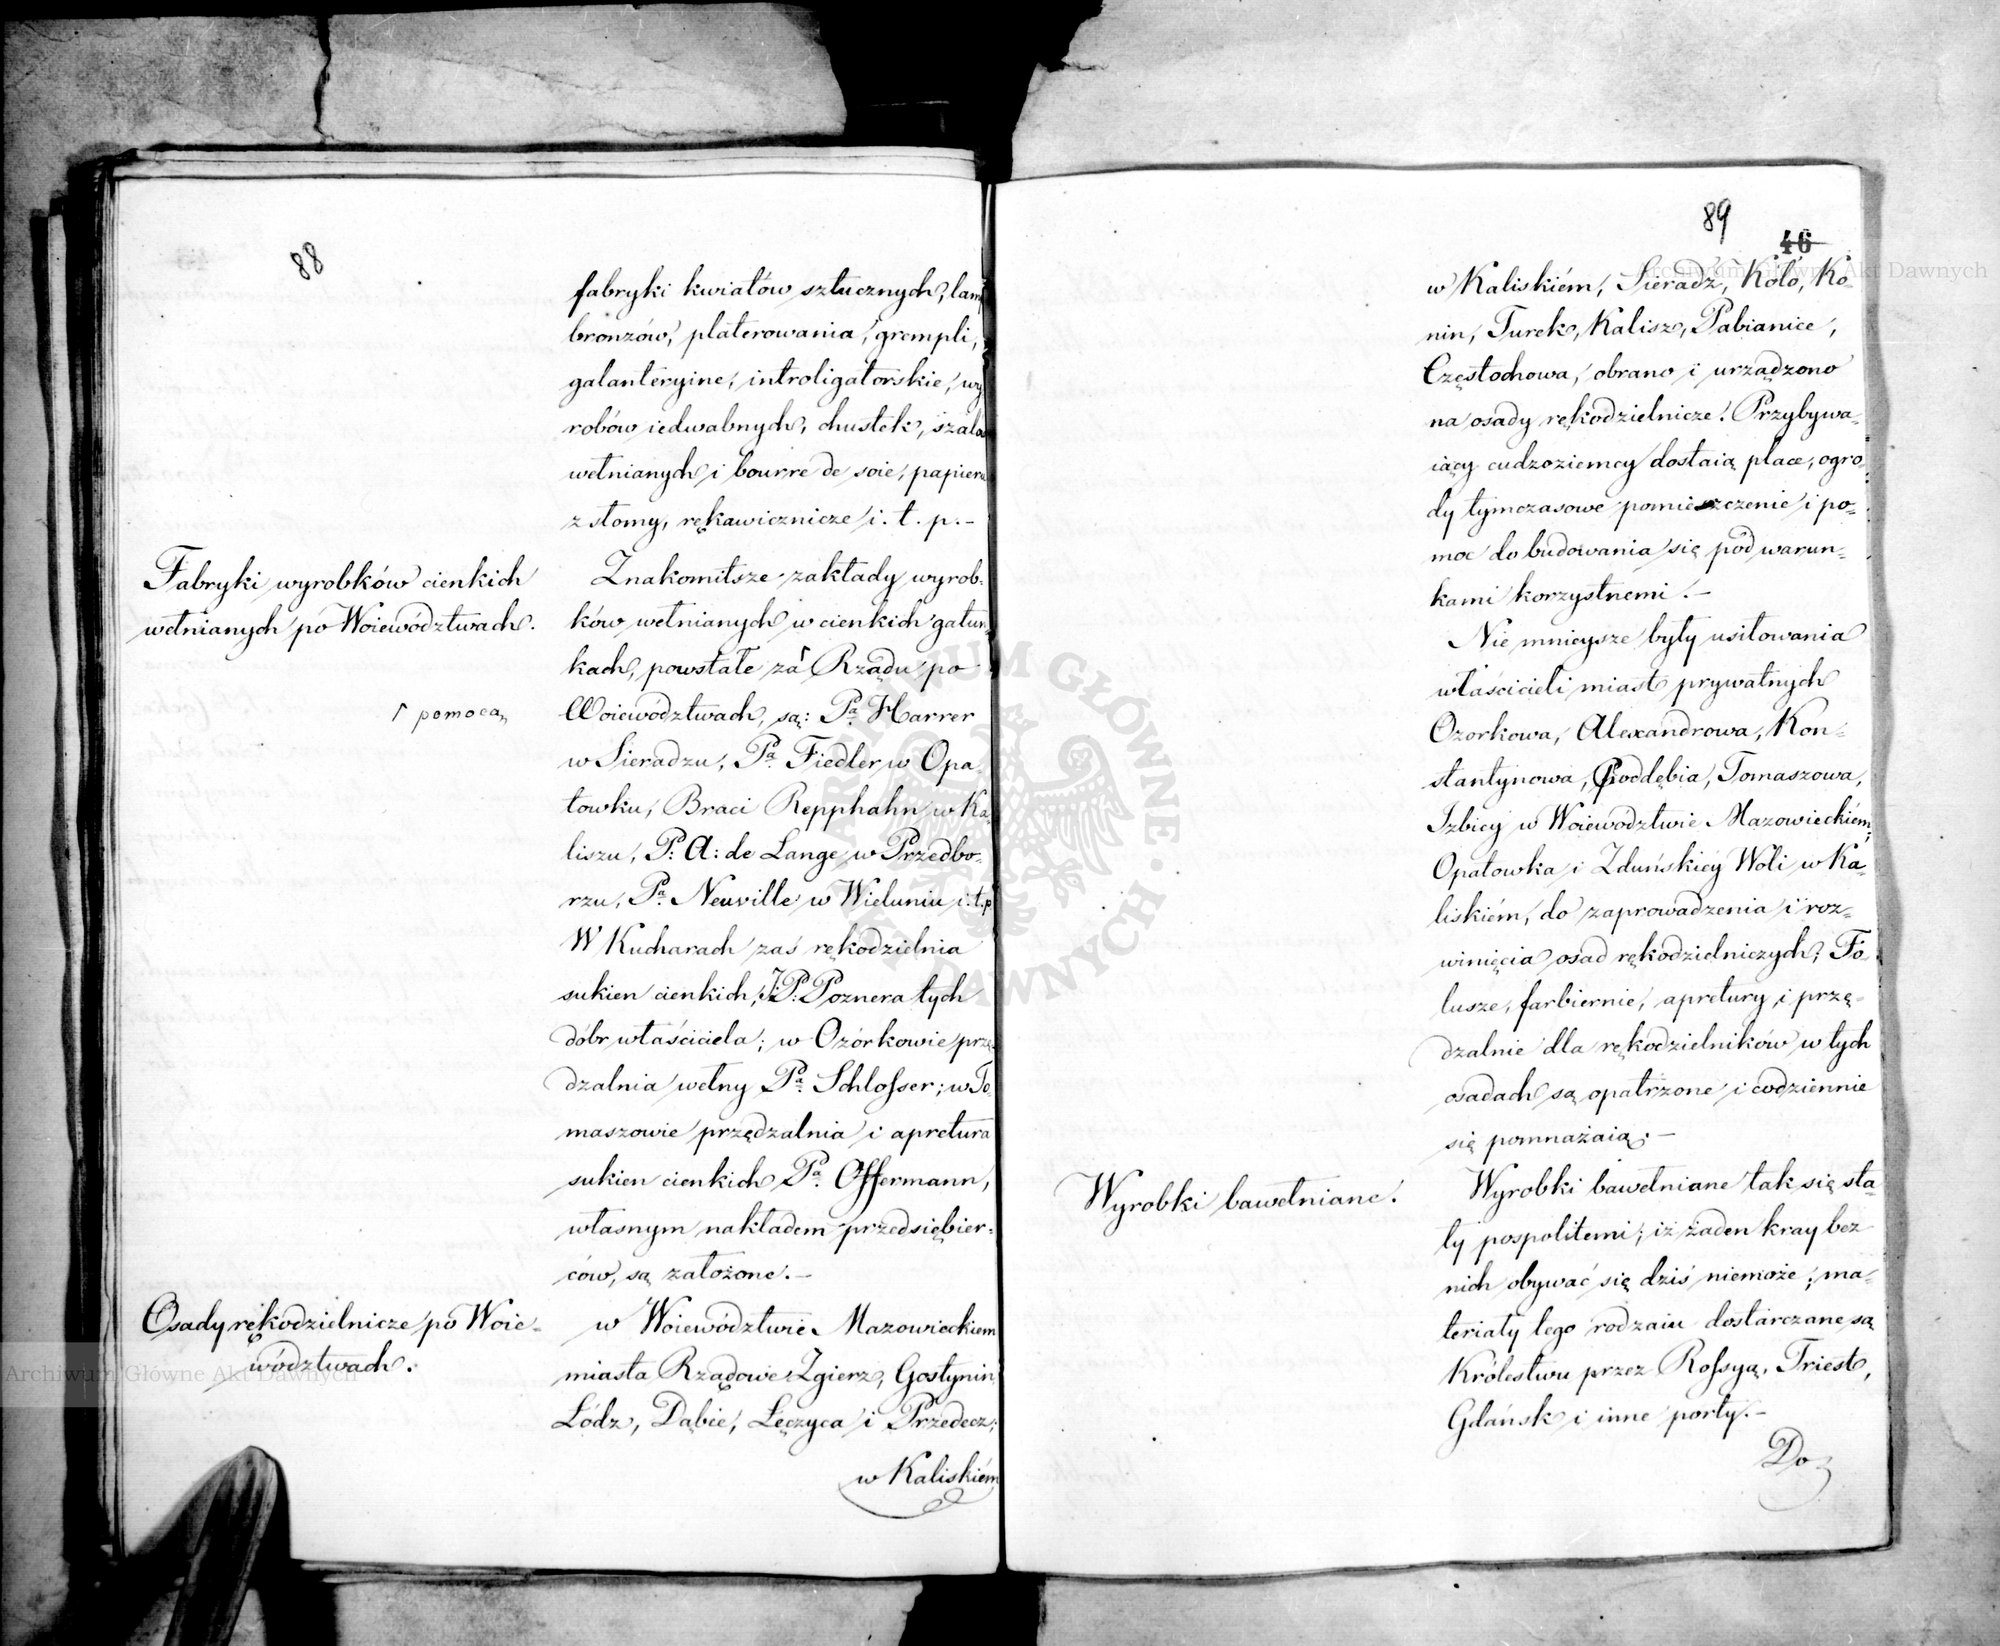 88
fabryki kwiatów sztucznych, lamp
bronzów, platerowania, grempli,
galanteryine, introligatorskie, wy
robów iedwabnych, chustek, szalów
wełnianych i bourre de soie, papieru
z słomy, rękawicznicze i. t. p. –
Fabryki wyrobków cienkich
wełnianych po Woiewództwach.
Znakomitsze zakłady wyrob-
ków wełnianych w cienkich gatun-
kach, powstałe za ┌ Rządu po
┌ pomocą
Woiewództwach, są: Pa. Harrer
w Sieradzu, Pa. Fiedler w Opa-
towku, Braci Repphahn w Ka-
liszu, P. A: de Lange w Przedbo-
rzu, Pa. Neuville w Wieluniu i. t. p
W Kucharach zaś rękodzielnia
sukien cienkich, JP. Poznera tych
dóbr właściciela; w Ozórkowie przę-
dzalnia wełny Pa. Schlosser; w To-
maszowie przędzalnia i apretura
sukien cienkich Pa. Offermann,
własnym nakładem przedsiębier-
ców, są założone. –
Osady rękodzielnicze po Woie-
wództwach.
w Woiewództwie Mazowieckiem
miasta Rządowe Zgierz, Gostynin
Łódz, Dąbie, Łęczyca i Przedecz;
w Kaliskiém
89
46
w Kaliskiém, Sieradz, Koło, Ko-
nin, Turek, Kalisz, Pabianice,
Częstochowa, obrano i urządzono
na osady rękodzielnicze. Przybywa-
iący cudzoziemcy dostaią place, ogro-
dy tymczasowe pomieszczenie i po-
moc do budowania się pod warun-
kami korzystnemi. –
Nie mnieysze były usiłowania
właścicieli miast prywatnych
Ozorkowa, Alexandrowa, Kon-
stantynowa, Poddębia, Tomaszowa,
Izbicy w Woiewodztwie Mazowieckiém;
Opatowka i Zduńskiey Woli w Ka-
liskiém, do zaprowadzenia i roz-
winięcia osad rękodzielniczych; Fo-
lusze, farbiernie, apretury i przę-
dzalnie dla rękodzielników w tych
osadach są opatrzone i codziennie
się pomnażaią. –
Wyrobki bawełniane.
Wyrobki bawełniane tak się sta-
ły pospolitemi, iż żaden kray bez
nich obywać się dziś niemoże; ma-
teriały tego rodzaiu dostarczane są
Królestwu przez Rossyą, Triest,
Gdańsk i inne porty. –
Do
Archiwum Główne Akt Dawnych
Archiwum Główne Akt Dawnych
ARCHIWUM GŁÓWNE AKT DAWNYCH